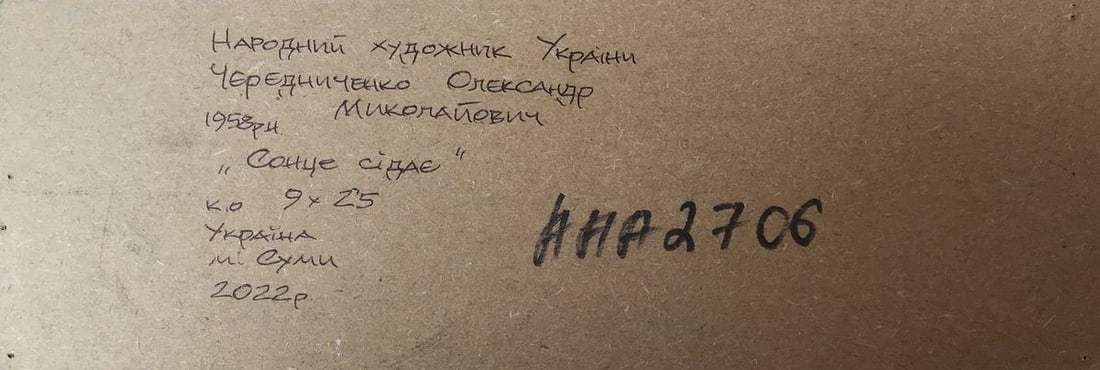 Народний художник України
Чередниченко Олександр
Миколайович
1958р.н.
„Сонце сідає"
к.о 9х25
Україна
м. Суми
2022р.
АНА2706